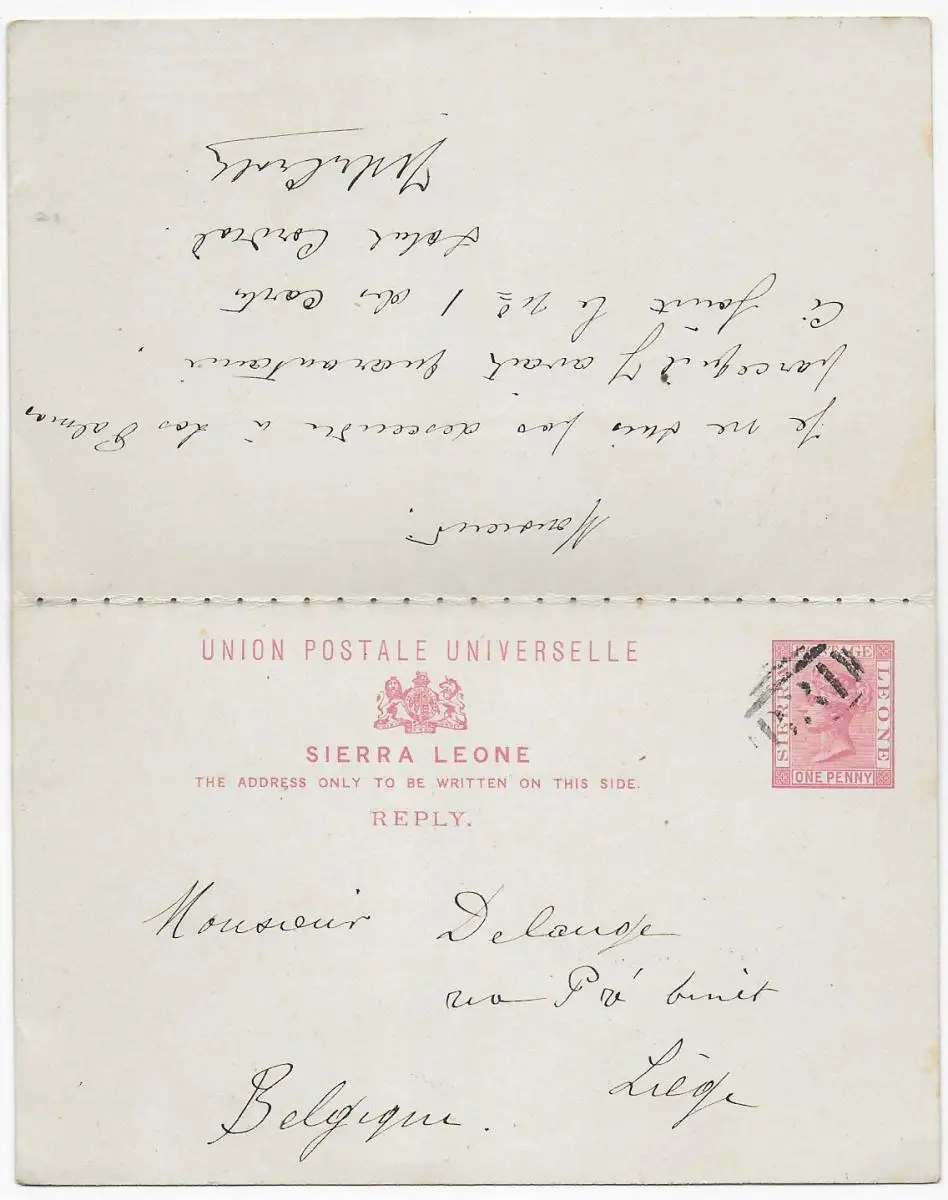 Monsieur.
Je ne suis pas descendu à Las Palmas
parcequ'il y avait quarantaine.
Ci joint le nº 1 des cartes
Salut Cordial
UNION POSTALE UNIVERSELLE
SIERRA LEONE
THE ADDRESS ONLY TO BE WRITTEN ON THIS SIDE.
REPLY.
POSTAGE
SIERRA LEONE
ONE PENNY
Monsieur Delange
rue Pré binèt
Liège
Belgique.